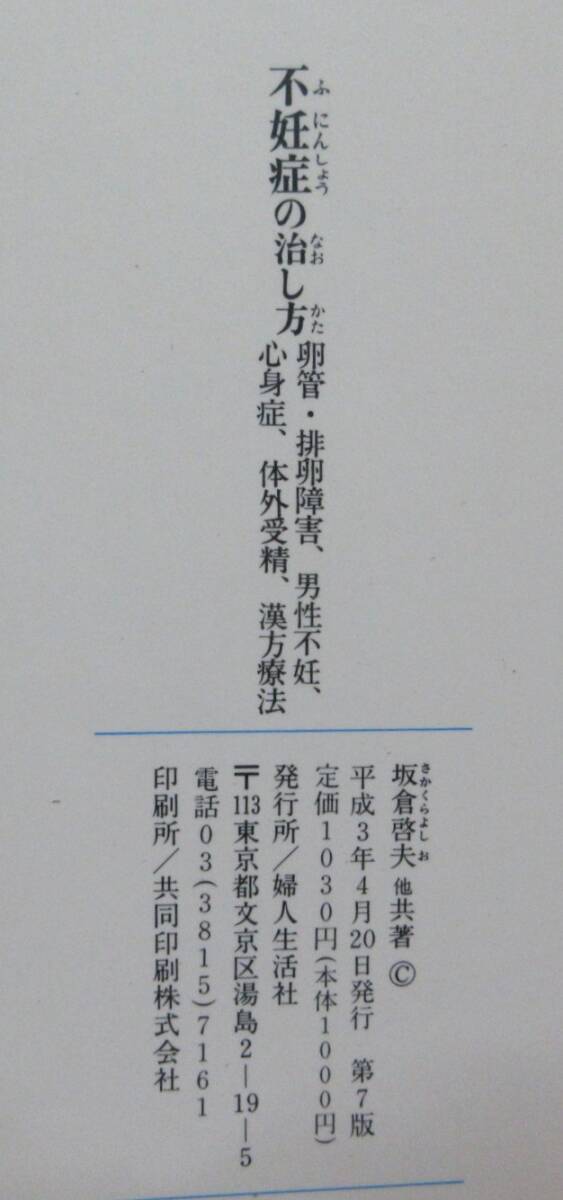 不妊症の治し方
ふにんしょう なお かた
卵管・排卵障害、男性不妊、
心身症、体外受精、漢方療法
さかくらよしお
坂倉啓夫 他共著 ©
平成3年4月20日発行 第7版
定価1030円(本体1000円)
発行所/婦人生活社
〒113東京都文京区湯島2―19―5
電話03(3815)7161
印刷所/共同印刷株式会社